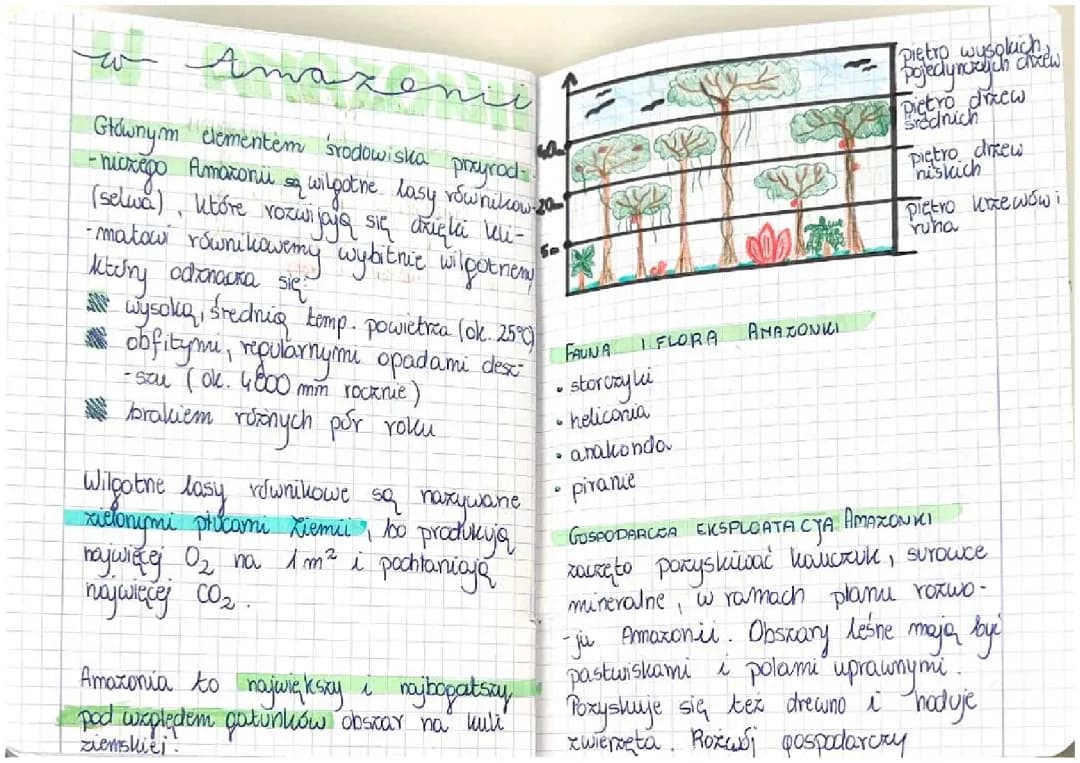 w Amazonii
Głównym elementem środowiska przyrod-
-niczego Amazonii są wilgotne lasy równikow-
(selwa), które rozwijają się dzięki kli-
-matowi równikowemu wybitnie wilgotnemu
który odznacza się:
wysoką, średnią temp. powietrza (ok. 25°C)
obfitymi, regularnymi opadami desz-
-szu (ok. 4000 mm rocznie)
brakiem różnych pór roku
Wilgotne lasy równikowe są nazywane
zielonymi płucami Ziemii, bo produkują
najwięcej O2 na 1m² i pochłaniają
najwięcej CO2.
Amazonia to największy i najbogatszy
pod względem gatunków obszar na kuli
ziemskiej.
piętro wysokich,
pojedynczych drzew
piętro drzew
średnich
piętro drzew
niskich
piętro krzewów i
runa
40
20
5
FAUNA I FLORA AMAZONKI
• storczyki
• heliconia
• anakonda
• piranie
GOSPODARCZA EKSPLOATACJA AMAZONKI
zaczęto pozyskiwać kauczuk, surowce
mineralne, w ramach planu rozwo-
-ju Amazonii. Obszary leśne mają być
pastwiskami i polami uprawnymi.
Pozyskuje się też drewno i hoduje
zwierzęta. Rozwój gospodarczy